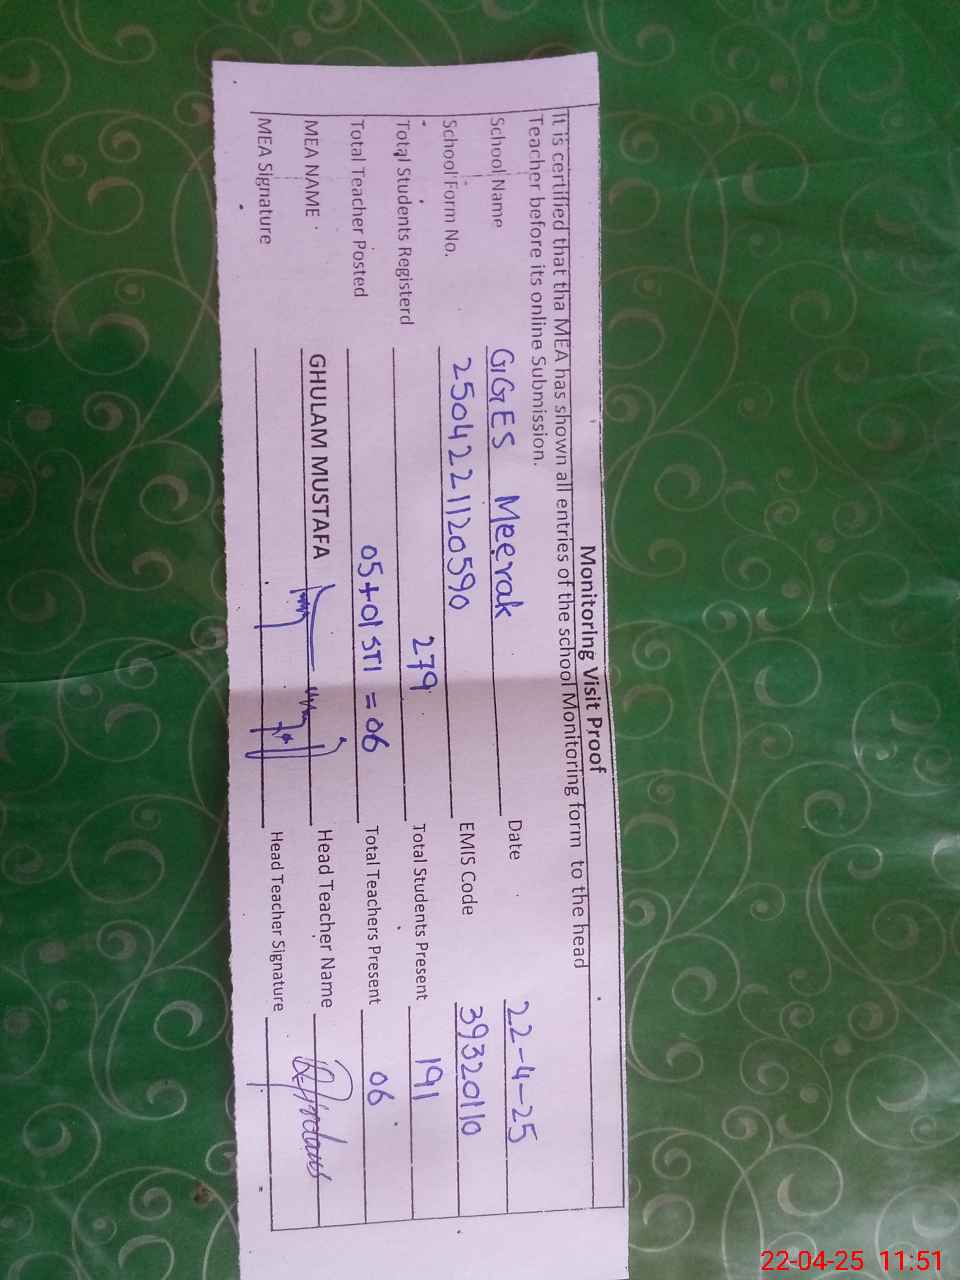 Monitoring Visit Proof
It is certified that tha MEA has shown all entries of the school Monitoring form to the head
Teacher before its online Submission.
School Name GGES Meerak Date 22-4-25
School Form No. 2504221120590 EMIS Code 39320110
Total Students Registerd 279 Total Students Present 191
Total Teacher Posted 05+01 STI = 06 Total Teachers Present 06
MEA NAME GHULAM MUSTAFA Head Teacher Name
MEA Signature Head Teacher Signature
22-04-25 11:51